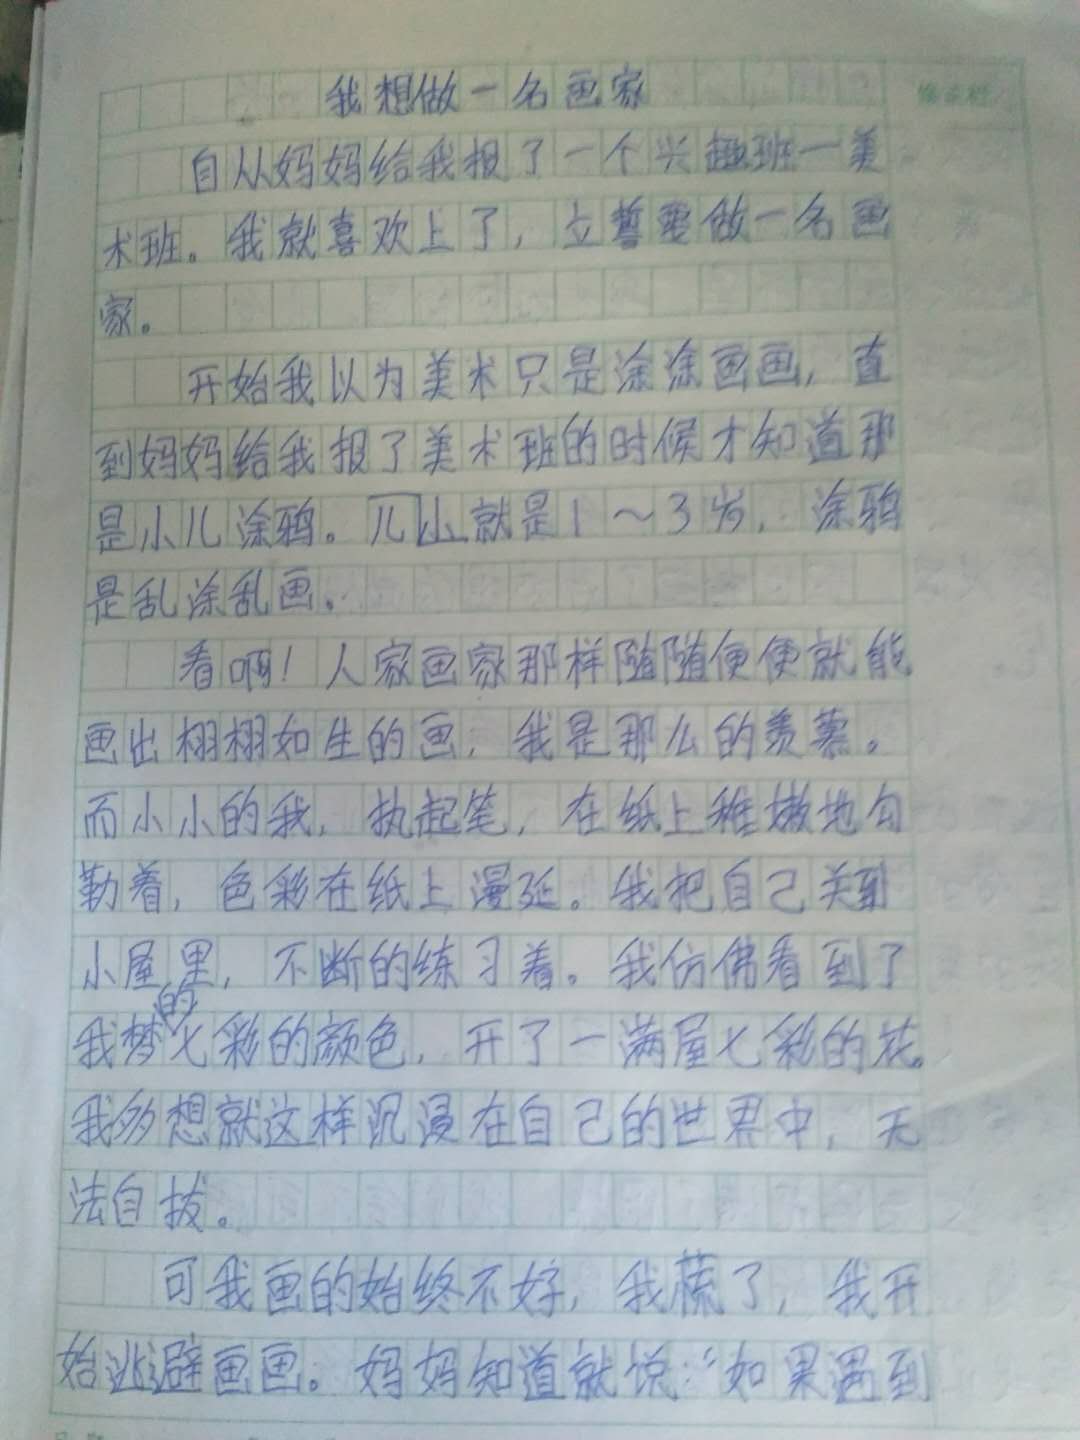 我想做一名画家
自从妈妈给我报了一个兴趣班一美
术班。我就喜欢上了，立誓要做一名画
家。
开始我以为美术只是涂涂画画，直
到妈妈给我报了美术班的时候才知道那
是小儿涂鸦。儿小就是1～3岁，涂鸦
是乱涂乱画。
看啊！人家画家那样随随便便就能
画出栩栩如生的画，我是那么的羡慕。
而小小的我，执起笔，在纸上稚嫩地勾
勒着，色彩在纸上漫延。我把自己关到
小屋里，不断的练习着。我仿佛看到了
我梦的七彩的颜色，开了一满屋七彩的花。
我多想就这样沉浸在自己的世界中，无
法自拔。
可我画的始终不好，我慌了，我开
始逃避画画。妈妈知道就说：“如果遇到